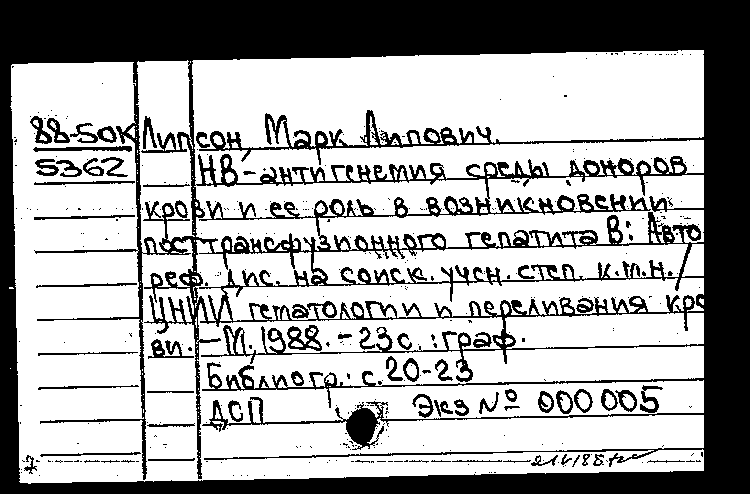 88-50К Липсон, Марк Липович.
5362 НВ-антигенемия среды доноров
крови и ее роль в возникновении
посттрансфузионного гепатита В: Авто
реф. дис. на соиск. учен. степ. к.м.н./
ЦНИИ гематологии и переливания кро
ви. – М., 1988. – 23 с. : граф.
Библиогр.: с. 20-23
ДСП Экз № 000005